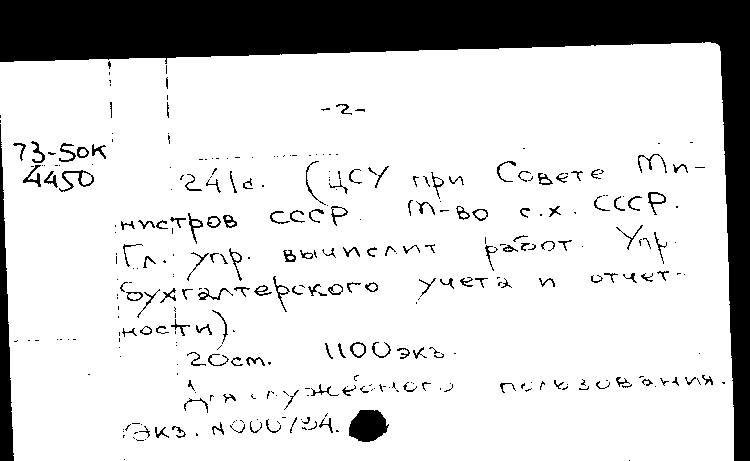 -2-
73-50К
4450
241с. (ЦСУ при Совете Ми-
нистров СССР. М-во с.х. СССР.
Гл. упр. вычислит работ. Упр.
бухгалтерского учета и отчет-
ности).
20см. 1100экз.
Для служебного пользования.
Экз. №